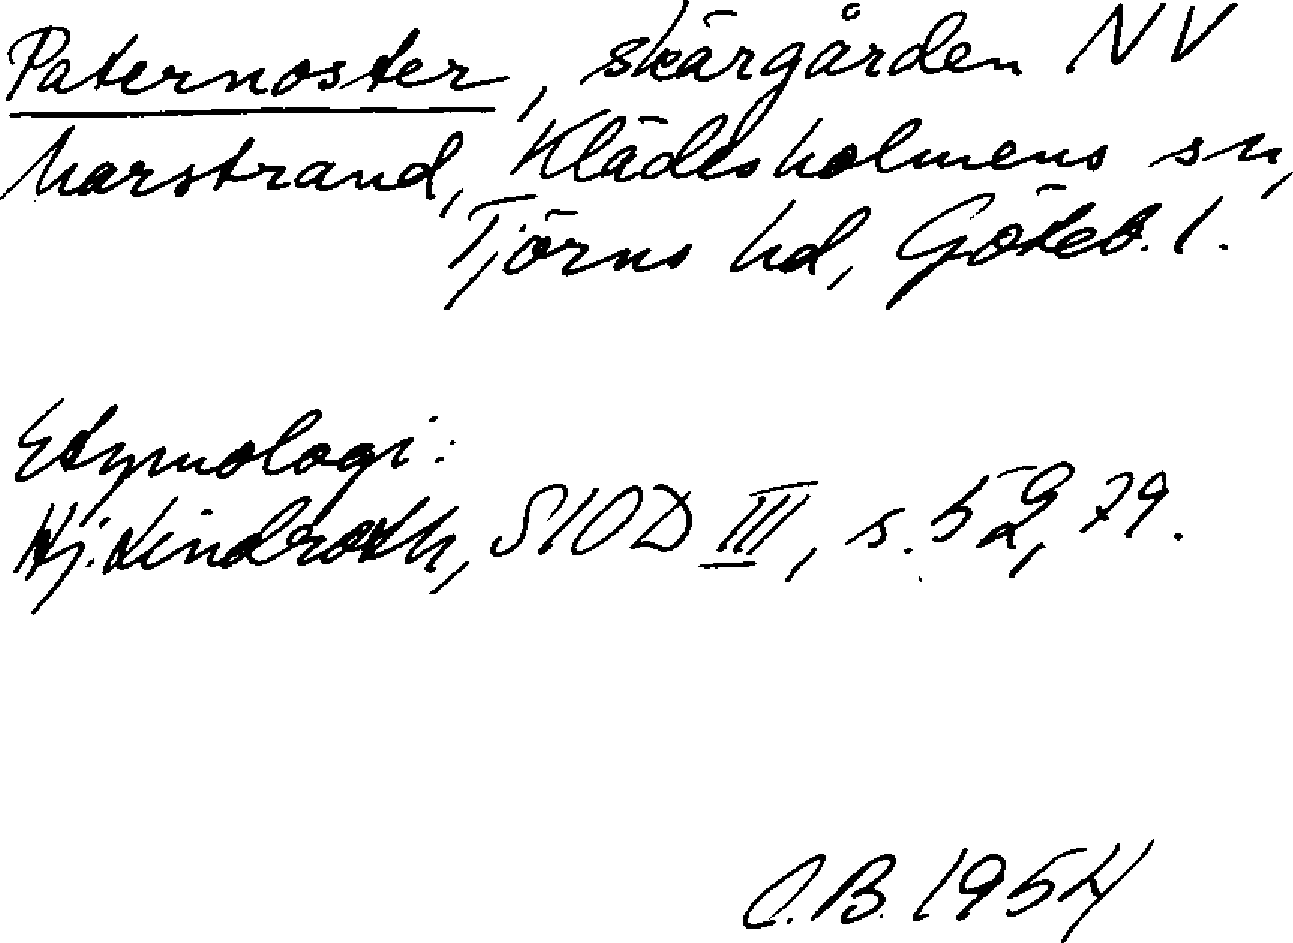 Paternoster, skärgården NV
Marstrand, Klädesholmens sn,
Tjörns hd, Göteb. l.
Etymologi:
Hj. Lindroth, SIOD III, s. 52, 79.
C.B. 1954